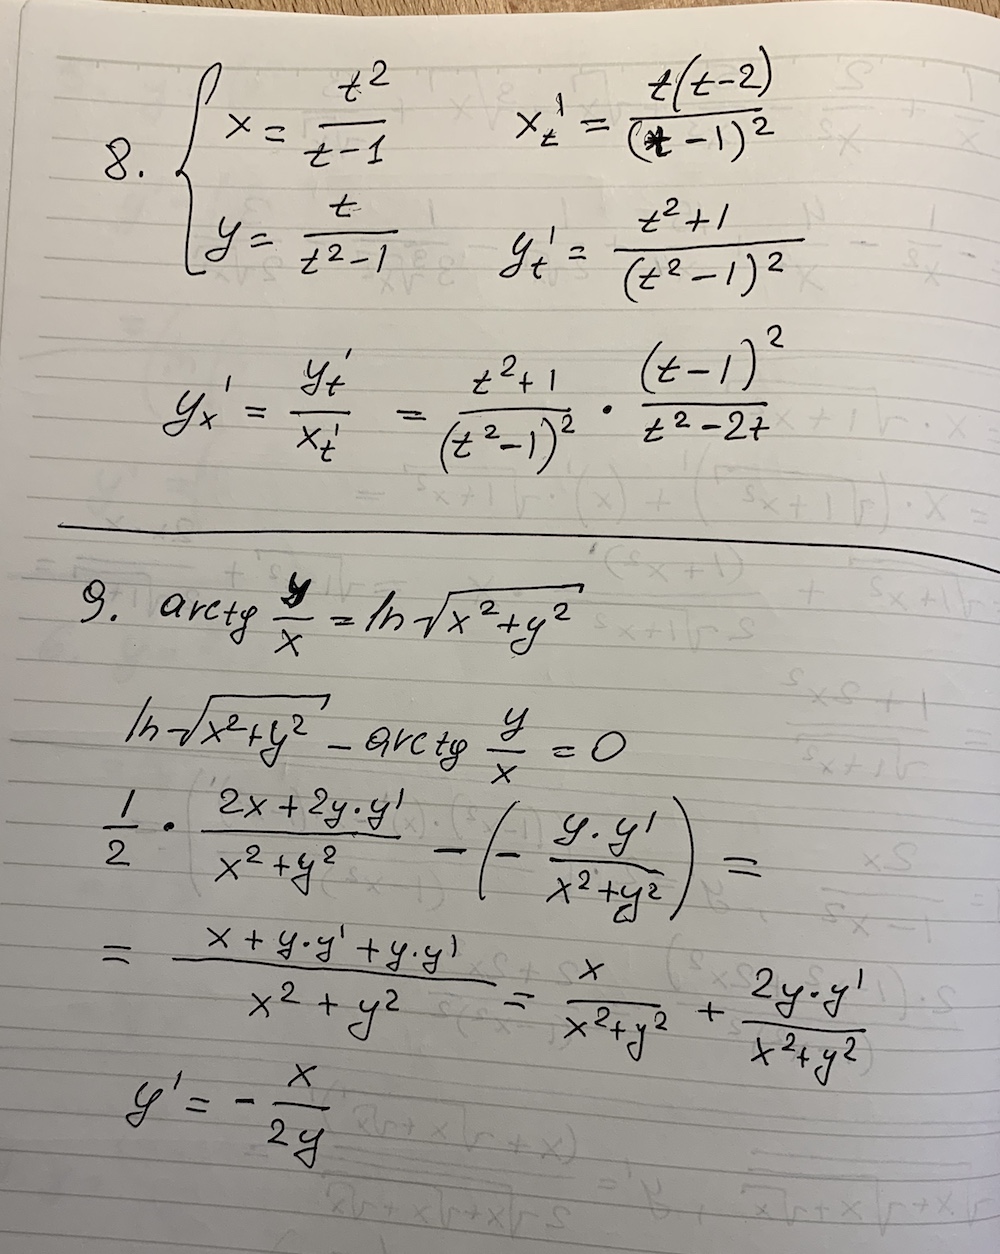 8. { x = t²/(t-1)   xₜ' = t(t-2)/(t-1)²
y = t/(t²-1)   yₜ' = (t²+1)/(t²-1)²
yₓ' = yₜ'/xₜ' = (t²+1)/(t²-1)² · (t-1)²/(t²-2t)
9. arctg y/x = ln√(x²+y²)
ln√(x²+y²) - arctg y/x = 0
1/2 · (2x+2y·y')/(x²+y²) - (- (y·y')/(x²+y²)) =
= (x+y·y'+y·y')/(x²+y²) = x/(x²+y²) + (2y·y')/(x²+y²)
y' = - x/(2y)